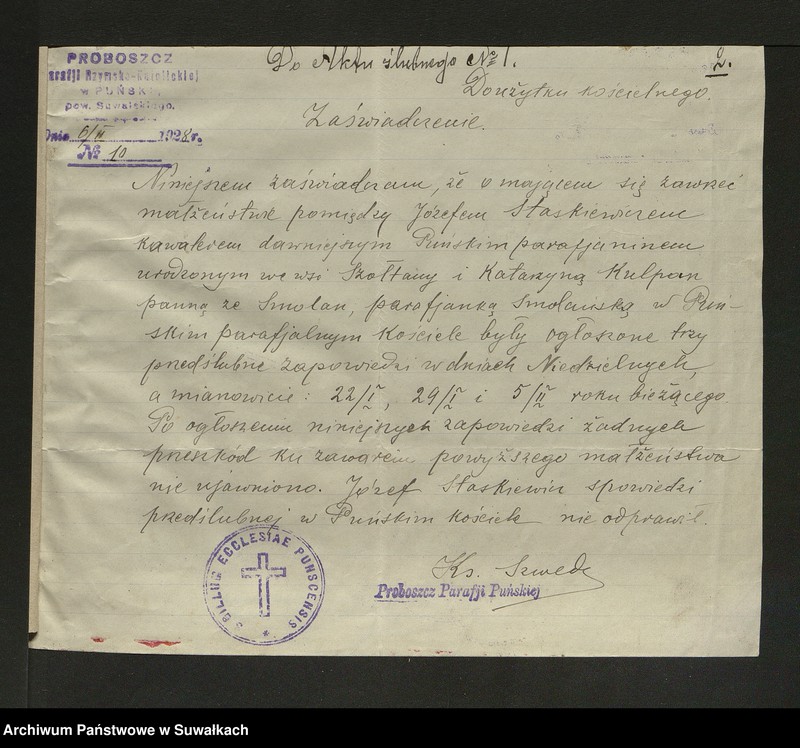 Do Aktu ślubnego № 1.
2.
PROBOSZCZ
Parafji Rzymsko-Katolickiej
w PUŃSKU
pow. Suwalskiego.
Dnia 6/II 1928 r.
№ 10
Do użytku kościelnego.
Zaświadczenie.
Niniejszem zaświadczam, że o mającem się zawrzeć
małżeństwie pomiędzy Józefem Staskiewiczem
kawalerem dawniejszym Puńskim parafjaninem
urodzonym we wsi Szołtany i Katarzyną Kulpan
panną ze Smolan, parafjanką Smolańską w Puń-
skim parafjalnym Kościele były ogłoszone trzy
przedślubne zapowiedzi w dniach Niedzielnych,
a mianowicie: 22/I, 29/I i 5/II roku bieżącego
Po ogłoszeniu niniejszych zapowiedzi żadnych
przeszkód ku zawarciu powyższego małżeństwa
nie ujawniono. Józef Staskiewicz spowiedzi
przedślubnej w Puńskim kościele nie odprawił.
Ks. Szwedo
Proboszcz Parafji Puńskiej
SIGILLUM ECCLESIAE PUNSCENSIS
Archiwum Państwowe w Suwałkach